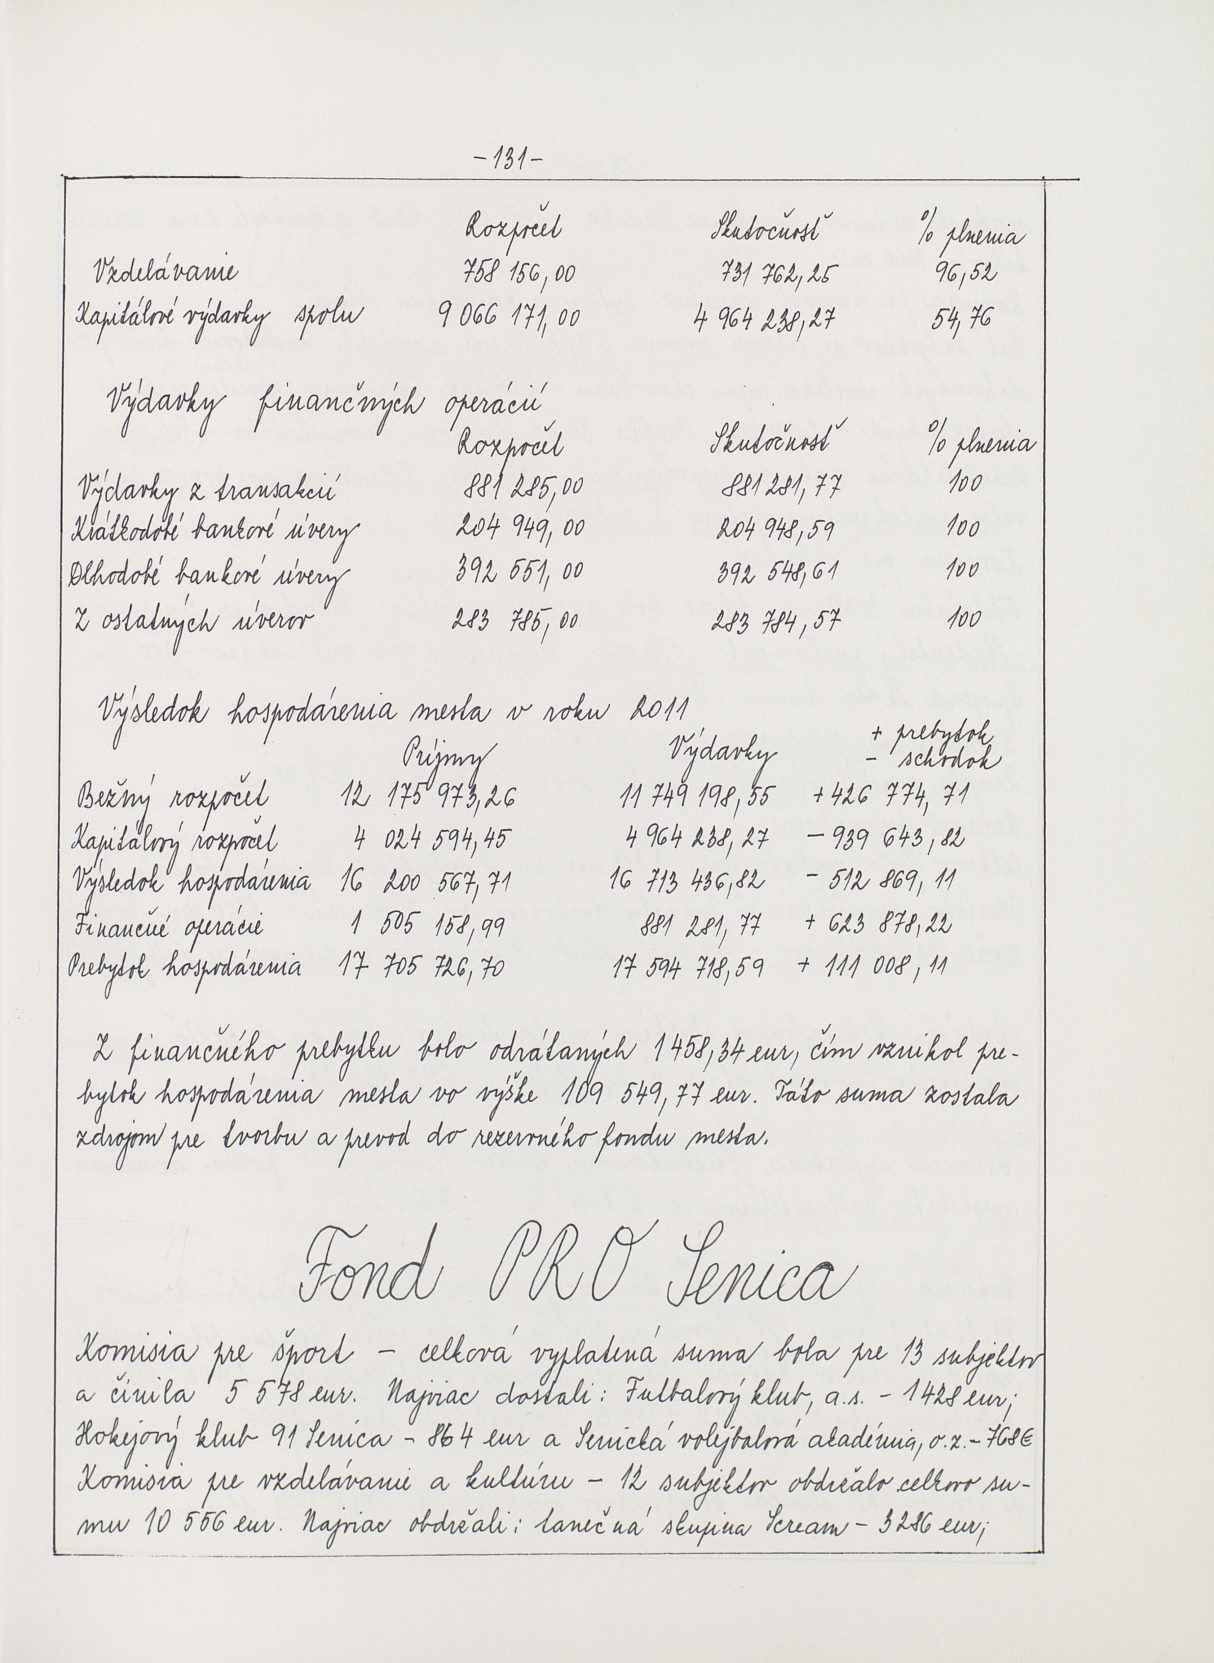 -131-
Rozpočet Skutočnosť % plnenia
Vzdelávanie 758 156,00 731 762,25 96,52
Kapitálové výdavky spolu 9 066 171,00 4 964 238,27 54,76
Výdavky finančných operácií
Rozpočet Skutočnosť % plnenia
Výdavky z transakcií 881 285,00 881 281,77 100
Krátkodobé bankové úvery 204 949,00 204 948,59 100
Dlhodobé bankové úvery 392 551,00 392 548,61 100
Z ostatných úverov 283 785,00 283 784,57 100
Výsledok hospodárenia mesta v roku 2011
Príjmy Výdavky + prebytok
- schodok
Bežný rozpočet 12 175 973,26 11 749 198,55 +426 774,71
Kapitálový rozpočet 4 024 594,45 4 964 238,27 -939 643,82
Výsledok hospodárenia 16 200 567,71 16 713 436,82 - 512 869,11
Finančné operácie 1 505 158,99 881 281,77 + 623 878,22
Prebytok hospodárenia 17 705 726,70 17 594 718,59 + 111 008,11
Z finančného prebytku bolo odrátaných 1 458,34 eur, čím vznikol pre-
bytok hospodárenia mesta vo výške 109 549,77 eur. Táto suma zostala
zdrojom pre tvorbu a prevod do rezervného fondu mesta.
Fond PRO Senica
Komisia pre šport - celková vyplatená suma bola pre 13 subjektov
a činila 5 578 eur. Najviac dostali: Futbalový klub, a.s. - 1 428 eur;
Hokejový klub 91 Senica - 864 eur a Senická volejbalová akadémia, o.z. - 768€
Komisia pre vzdelávanie a kultúru - 12 subjektov obdržalo celkovo su-
mu 10 556 eur. Najviac obdržali: tanečná skupina Scream - 3 286 eur;